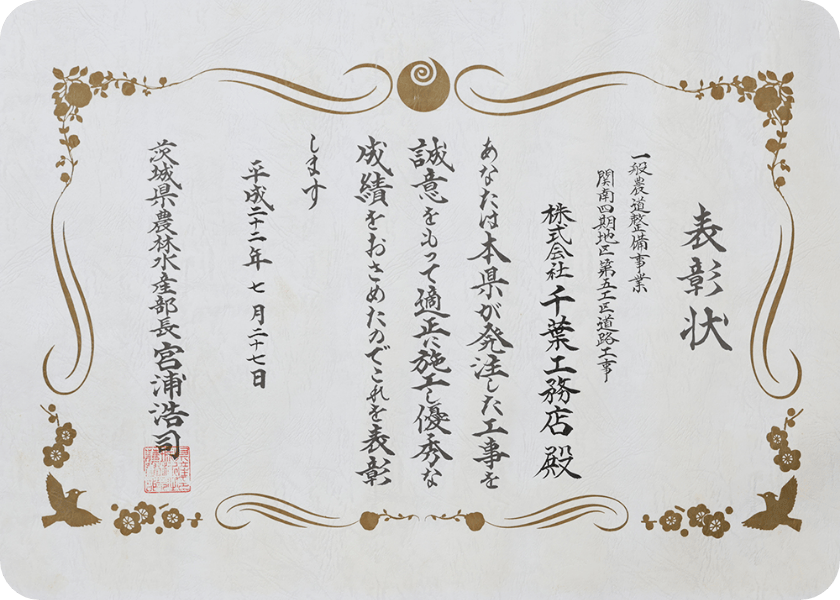 表彰状
一般農道整備事業
関南四期地区第五工区道路工事
株式会社 千葉工務店 殿
あなたは本県が発注した工事を
誠意をもって適正に施工し優秀な
成績をおさめたのでこれを表彰
します
平成二十二年 七月二十七日
茨城県農林水産部長 宮浦浩司